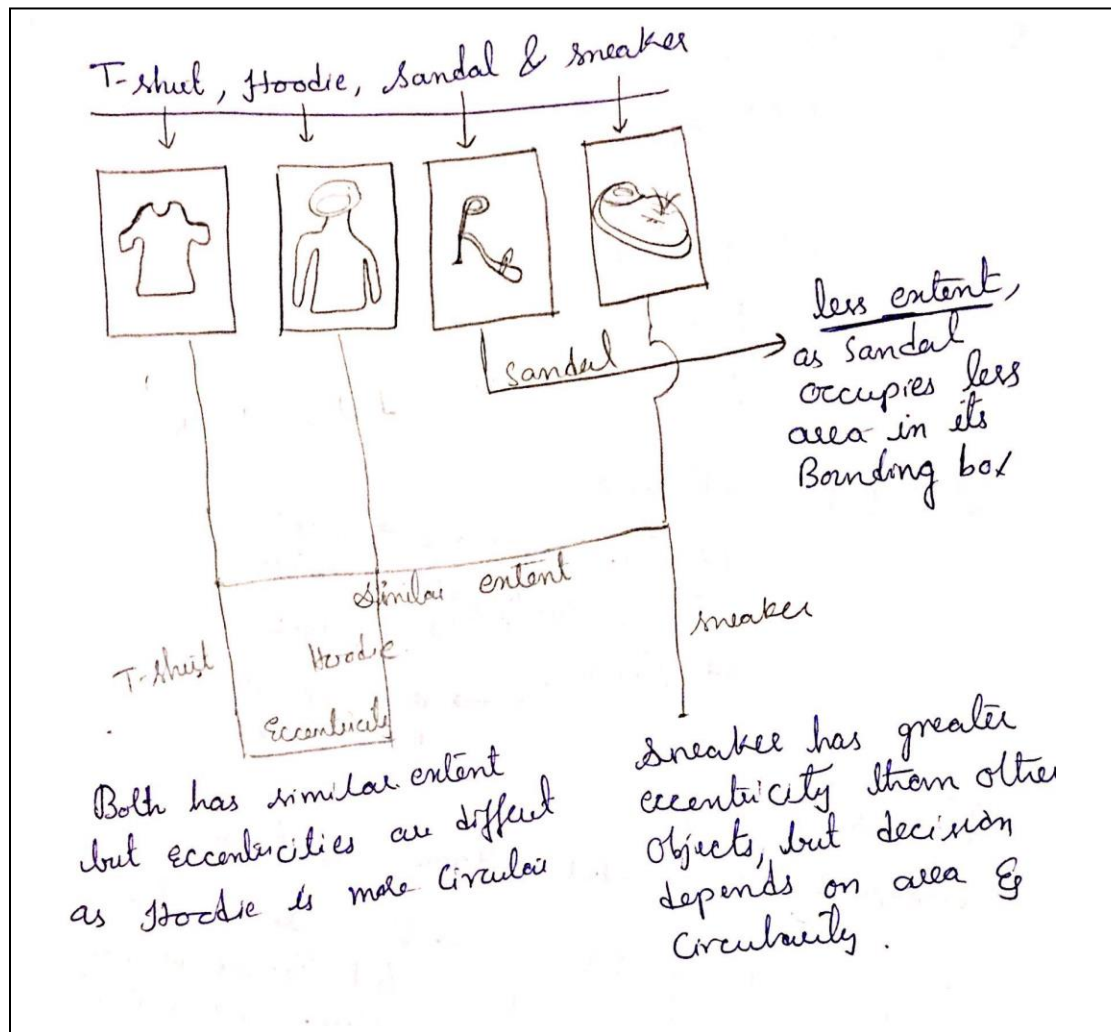 T-shirt, Hoodie, Sandal & sneaker
Sandal
less extent,
as Sandal
occupies less
area in its
Bounding box
Similar extent
T-shirt
Hoodie
sneaker
Eccentricity
Both has similar extent
but eccentricities are diffent
as Hoodie is more Circular
Sneaker has greater
eccentricity than other
Objects, but decision
depends on area &
Circularity.